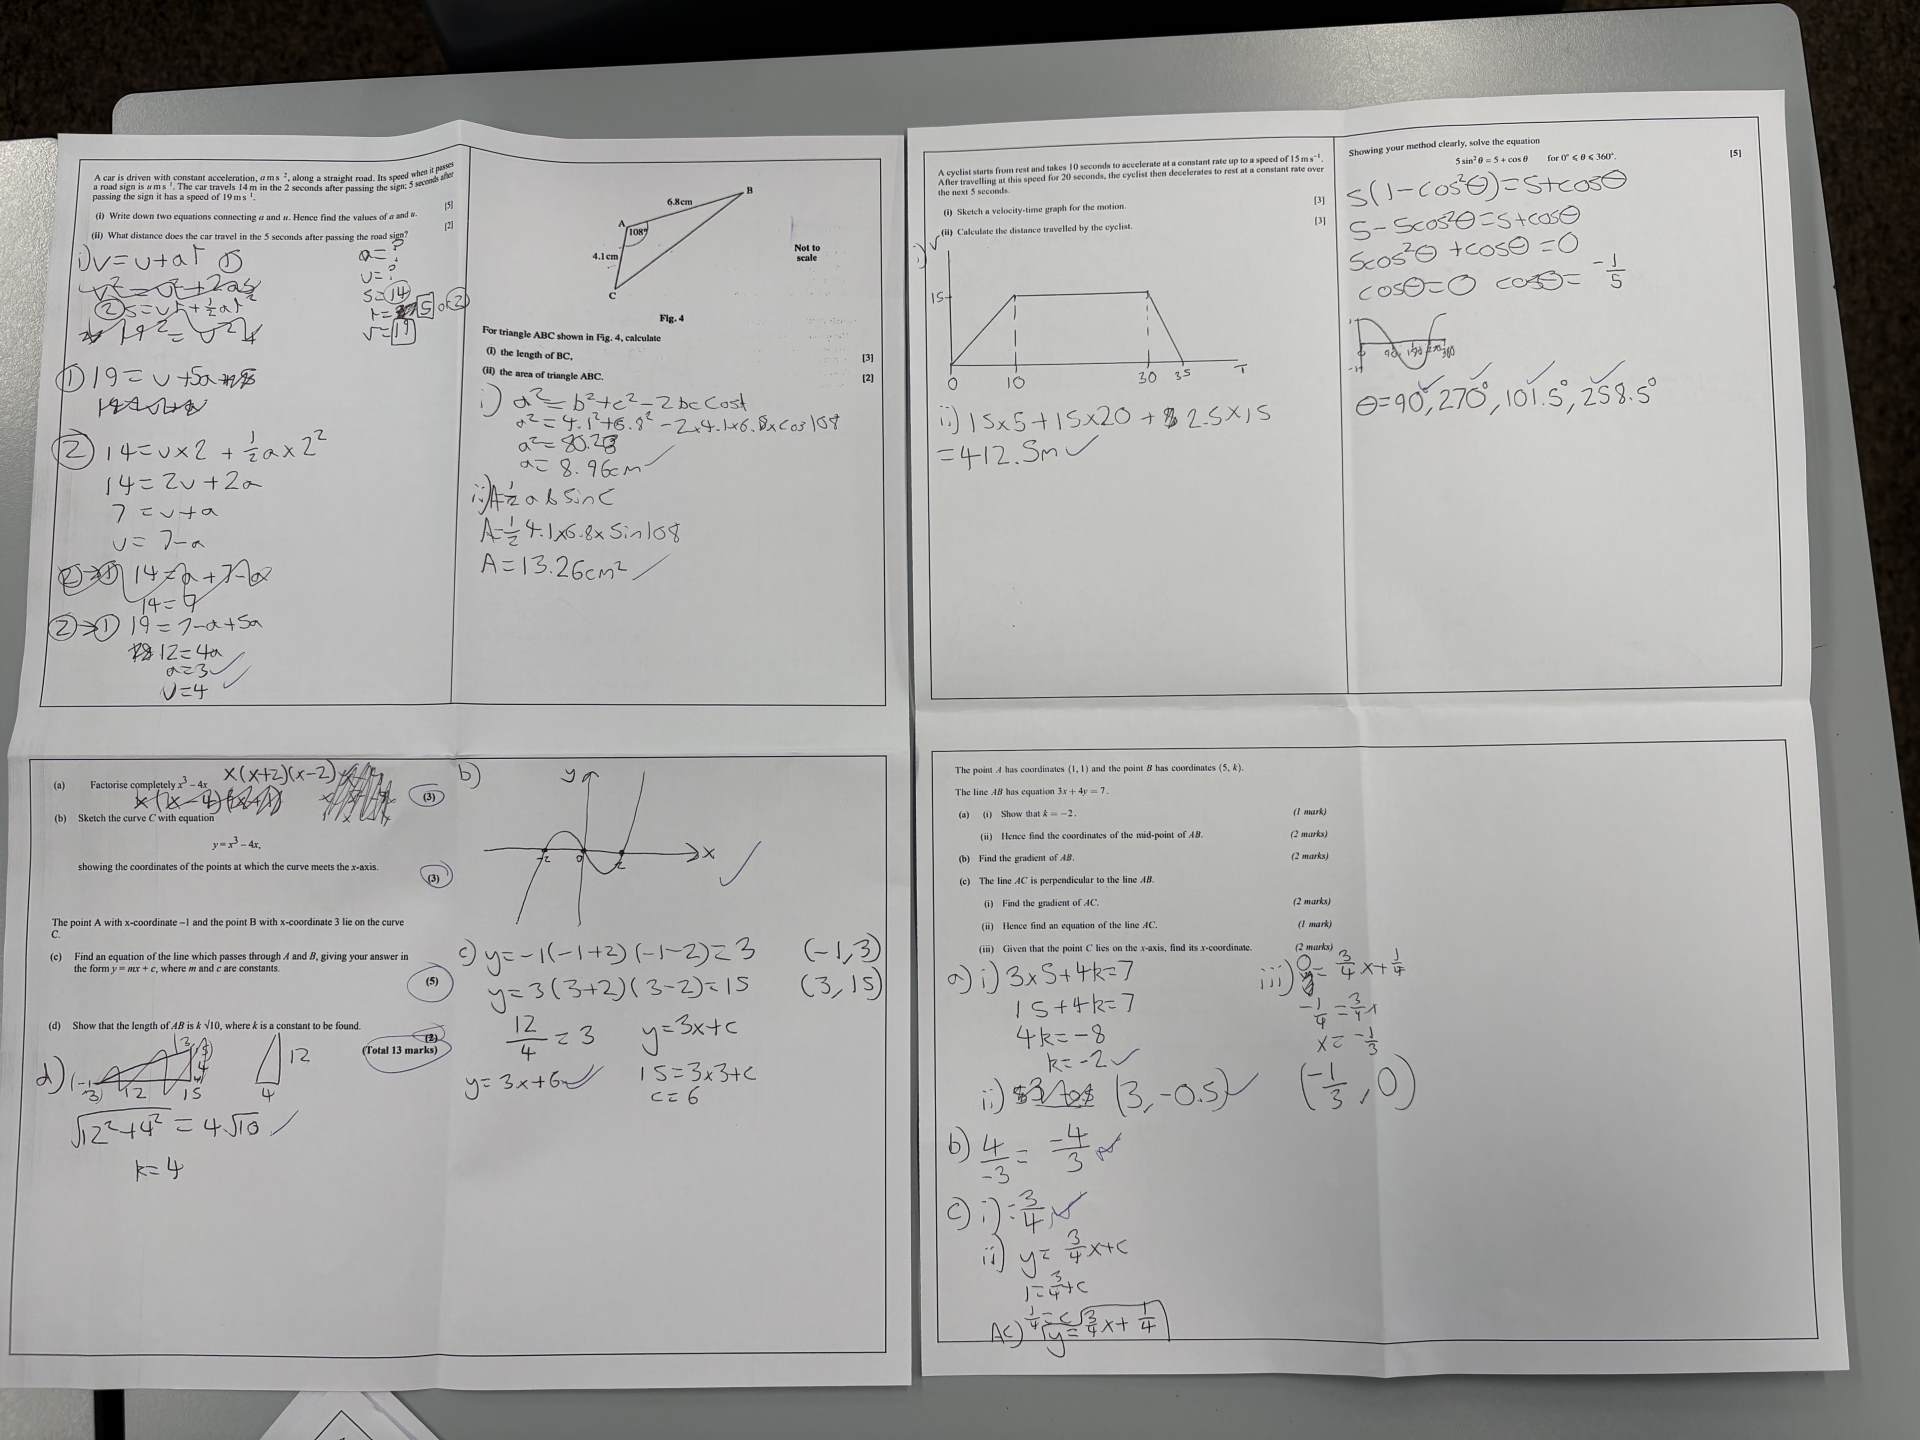 A car is driven with constant acceleration, a m s⁻², along a straight road. Its speed when it passes
a road sign is u m s⁻¹. The car travels 14 m in the 2 seconds after passing the sign; 5 seconds after
passing the sign it has a speed of 19 m s⁻¹.
(i) Write down two equations connecting a and u. Hence find the values of a and u. [5]
(ii) What distance does the car travel in the 5 seconds after passing the road sign? [2]
i) v=u+at ①
v²=u²+2as
② s=ut+½at²
19²=
a=?
u=?
s=14
t=5 or 2
v=19
① 19=u+5a
② 14=u×2+½a×2²
14=2u+2a
7=u+a
u=7-a
②→① 14=a+7-a
14=7
②→① 19=7-a+5a
12=4a
a=3
u=4
B
6.8cm
A
108°
4.1cm
C
Not to
scale
Fig. 4
For triangle ABC shown in Fig. 4, calculate
(i) the length of BC, [3]
(ii) the area of triangle ABC. [2]
i) a²=b²+c²-2bccosA
a²=4.1²+6.8²-2×4.1×6.8×cos108
a²=80.28
a=8.96cm
ii) A=½absinC
A=½4.1×6.8×sin108
A=13.26cm²
A cyclist starts from rest and takes 10 seconds to accelerate at a constant rate up to a speed of 15 m s⁻¹.
After travelling at this speed for 20 seconds, the cyclist then decelerates to rest at a constant rate over
the next 5 seconds.
(i) Sketch a velocity-time graph for the motion. [3]
(ii) Calculate the distance travelled by the cyclist. [3]
i) v
15
0 10 30 35 T
ii) 15×5+15×20+2.5×15
=412.5m
Showing your method clearly, solve the equation
5 sin²θ = 5 + cos θ for 0° ⩽ θ ⩽ 360°. [5]
5(1-cos²θ)=5+cosθ
5-5cos²θ=5+cosθ
5cos²θ+cosθ=0
cosθ=0 cosθ=-1/5
90 180 270 360
θ=90°, 270°, 101.5°, 258.5°
(a) Factorise completely x³ – 4x x(x+2)(x-2)
(3)
(b) Sketch the curve C with equation
y = x³ – 4x,
showing the coordinates of the points at which the curve meets the x-axis.
(3)
The point A with x-coordinate –1 and the point B with x-coordinate 3 lie on the curve
C.
(c) Find an equation of the line which passes through A and B, giving your answer in
the form y = mx + c, where m and c are constants.
(5)
(d) Show that the length of AB is k √10, where k is a constant to be found.
(2)
(Total 13 marks)
d)
12
4
√12²+4² = 4√10
k=4
b)
y
x
-2 0 2
c) y=-1(-1+2)(-1-2)=3 (-1,3)
y=3(3+2)(3-2)=15 (3,15)
12/4=3 y=3x+c
y=3x+6 15=3×3+c
c=6
The point A has coordinates (1, 1) and the point B has coordinates (5, k).
The line AB has equation 3x + 4y = 7.
(a) (i) Show that k = –2. (1 mark)
(ii) Hence find the coordinates of the mid-point of AB. (2 marks)
(b) Find the gradient of AB. (2 marks)
(c) The line AC is perpendicular to the line AB.
(i) Find the gradient of AC. (2 marks)
(ii) Hence find an equation of the line AC. (1 mark)
(iii) Given that the point C lies on the x-axis, find its x-coordinate. (2 marks)
a) i) 3×5+4k=7
15+4k=7
4k=-8
k=-2
ii) (3,-0.5)
b) 4/-3=-4/3
c) i) =3/4
ii) y=3/4x+c
1=3/4+c
1/4=c
AC) y=3/4x+1/4
iii) 0=3/4x+1/4
-1/4=3/4x
x=-1/3
(-1/3,0)